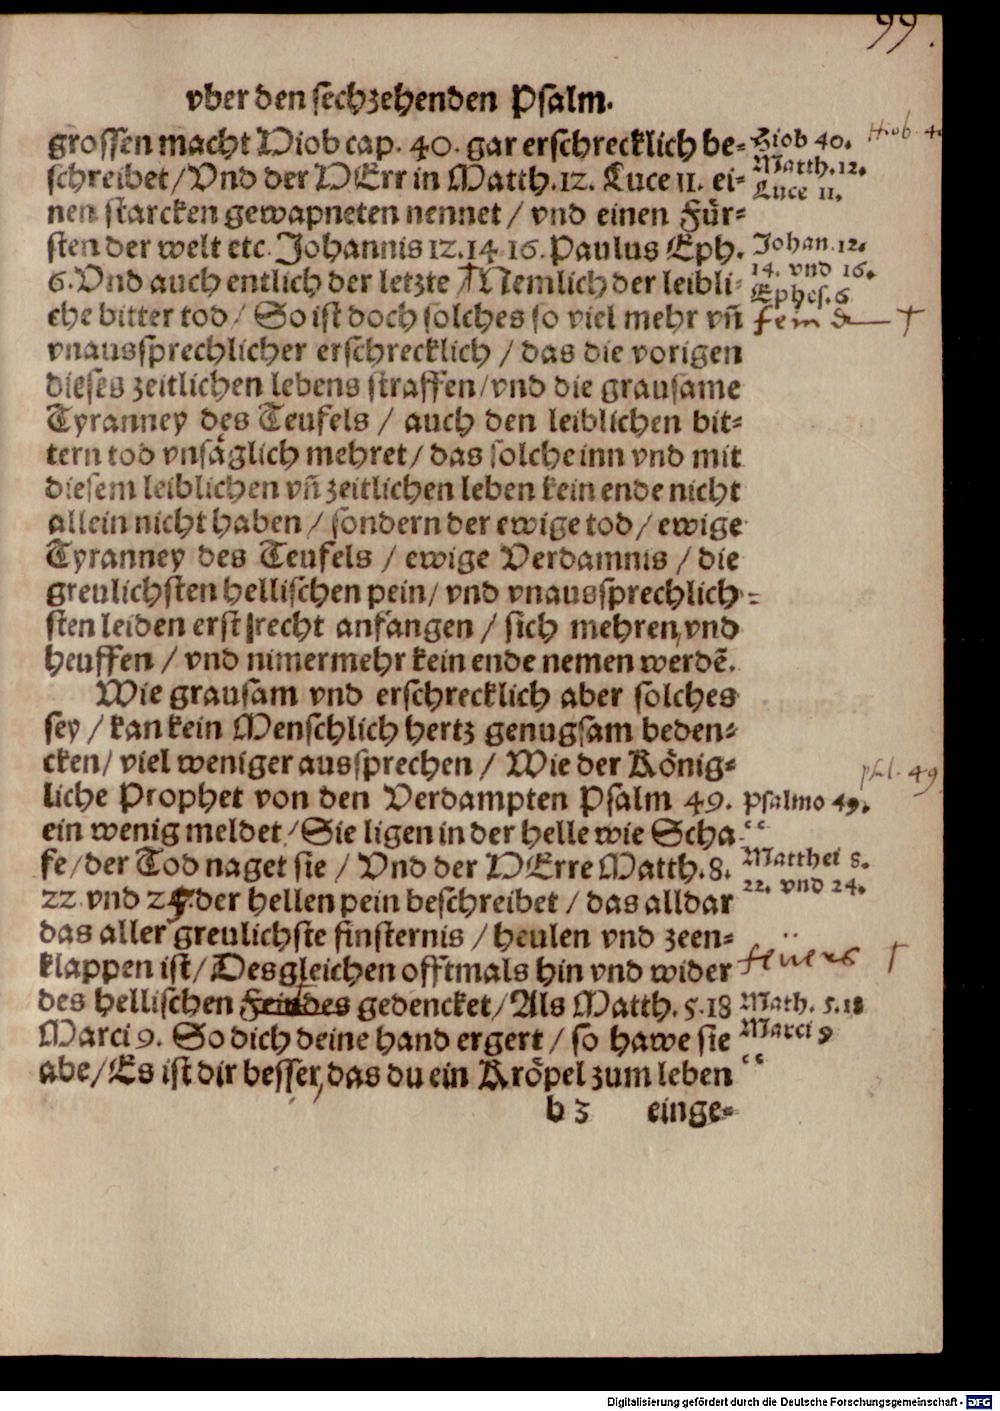 99.
vber den sechzehenden Psalm.
grossen macht Hiob cap. 40. gar erschrecklich be-
schreibet/ Vnd der HErr in Matth. 12. Luce 11. ei-
nen starcken gewapneten nennet / vnd einen Für-
sten der welt etc. Johannis 12. 14 16. Paulus Eph.
6. Vnd auch entlich der letzte / † Nemlich der leibli-
che bitter tod / So ist doch solches so viel mehr vñ
vnaussprechlicher erschrecklich / das die vorigen
dieses zeitlichen lebens straffen/ vnd die grausame
Tyranney des Teufels / auch den leiblichen bit-
tern tod vnsäglich mehret / das solche inn vnd mit
diesem leiblichen vñ zeitlichen leben kein ende nicht
allein nicht haben / sondern der ewige tod / ewige
Tyranney des Teufels / ewige Verdamnis / die
greulichsten hellischen pein/ vnd vnaussprechlich-
sten leiden erst recht anfangen / sich mehren, vnd
heuffen / vnd nimermehr kein ende nemen werdẽ.
Wie grausam vnd erschrecklich aber solches
sey / kan kein Menschlich hertz genugsam beden-
cken/ viel weniger aussprechen / Wie der König-
liche Prophet von den Verdampten Psalm 49.
ein wenig meldet / Sie ligen in der helle wie Scha
fe/ der Tod naget sie / Vnd der HErre Matth. 8.
22 vnd 24. der hellen pein beschreibet / das alldar
das aller greulichste finsternis / heulen vnd zeen-
klappen ist/ Desgleichen offtmals hin vnd wider
des hellischen Feindes gedencket/ Als Matth. 5. 18
Marci 9. So dich deine hand ergert / so hawe sie
abe/ Es ist dir besser, das du ein Kröpel zum leben
b 3 einge-
Hiob 40. Hiob. 40
Matth. 12.
Luce 11.
Johan. 12.
14. vnd 16.
Ephes. 6
feind †
psal. 49
Psalmo 49.
“
Matthei 8.
22. vnd 24.
feüers †
Math. 5. 18
Marci 9
“
Digitalisierung gefördert durch die Deutsche Forschungsgemeinschaft - DFG